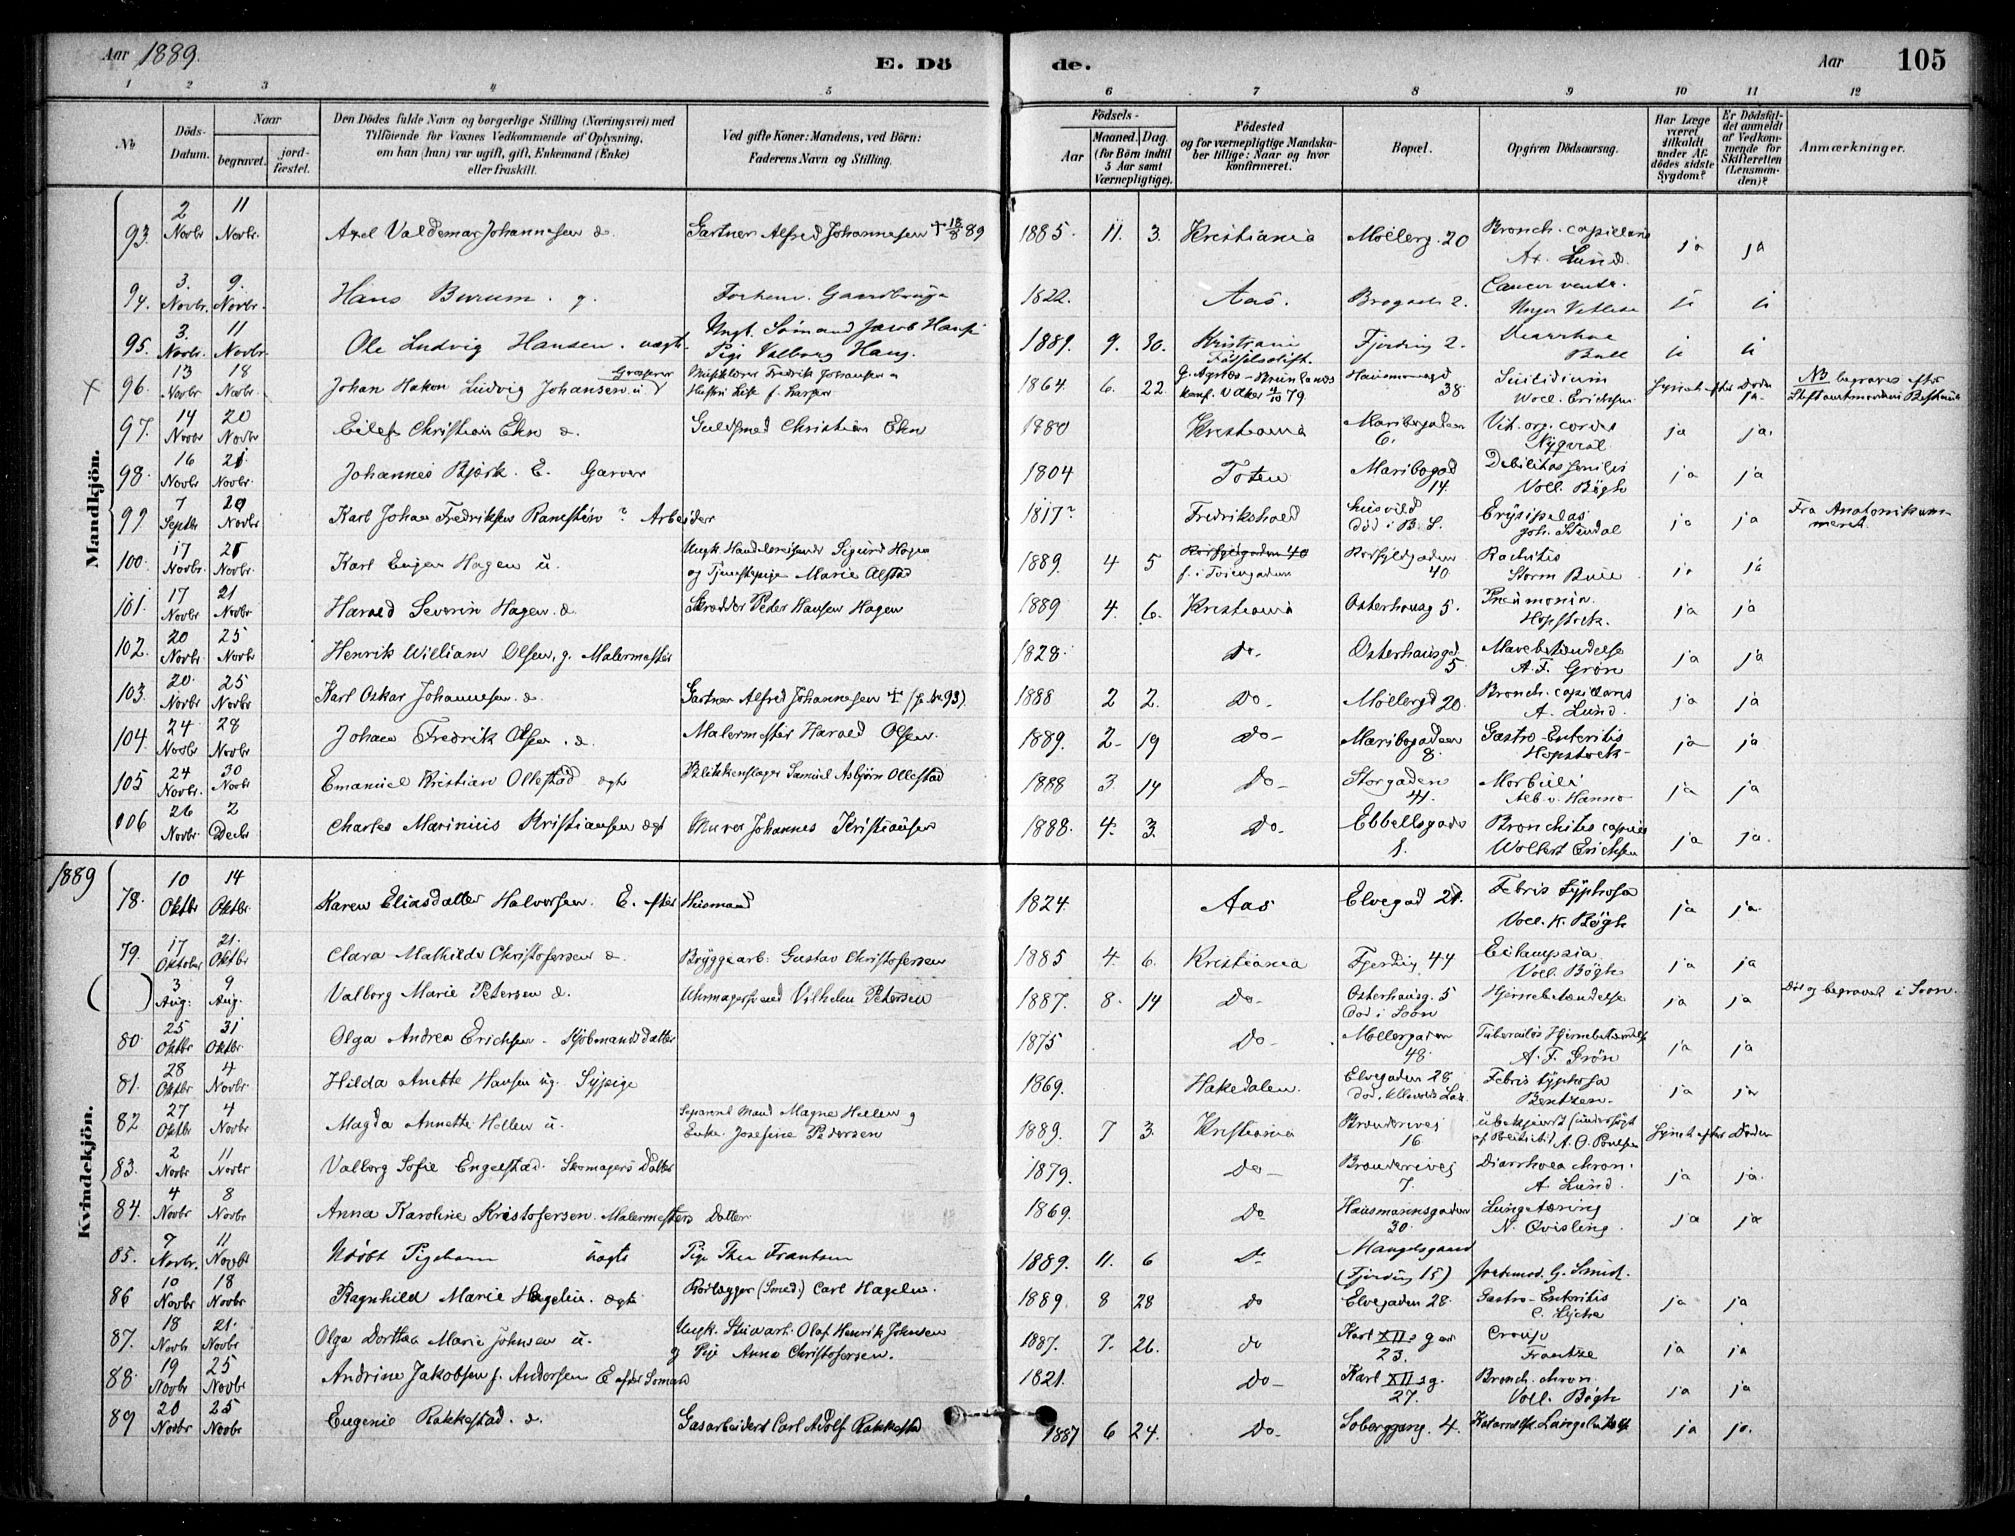 Aar 1889.
E. Dö
de.
Aar
105
1 2 3 4 5 6 7 8 9 10 11 12
No
Döds-Datum.
Naar
begravet.
jord-fæstet.
Den Dödes fulde Navn og borgerlige Stilling (Næringsvei) med
Tilföiende for Voxnes Vedkommende af Oplysning,
om han (hun) var ugift, gift, Enkemand (Enke)
eller fraskilt.
Ved gifte Koner: Mandens, ved Börn:
Faderens Navn og Stilling.
Födsels-
Aar
Maaned. Dag.
(for Börn indtil 5 Aar samt Værnepligtige).
Födested
og for værnepligtige Mandska-
ber tillige: Naar og hvor
konfirmeret.
Bopæl.
Opgiven Dödsaarsag.
Har Læge været tilkaldt under Afdödes sidste Sygdom?
Er Dödsfaldet anmeldt af Vedkommende for Skifteretten (Lensmanden)?
Anmærkninger.
Mandkjön.
93. 2 Novbr 11 Novbr. Axel Valdemar Johannesen æ. Gartner Alfred Johannesen + 18/8 89 1885. 11. 3. Kristiania Möllerg. 20 Bronch. capillaris A. Lund. ja ja
94. 3. Novbr. 9. Novbr. Hans Burum. g. 1822. Aas. Brogade 2. Cancer ventr. ja ja
95. 3. Novbr. 11 Novbr. Ole Ludvig Hansen. uægte Ungk. Sömand Jacob Hans Pige Valborg Hans. 1889. 9. 30. Kristiania Födselsstift. Fjerding 2. Diarrhoe Bull ja ja
96. 13 Novbr 18 Novbr. Johan Hakon Ludvig Johansen u. Musiklærer Fredrik Johansen 1864. 6. 22. konf. 4/10 79 Hausmannsgd 38. Suicidium Woll. Erichsen Synet efter Döden ja NB begraves efter Stiftamtmandens
97. 14 Novbr 20 Novbr Eilef Christian Ekn æ. Guldsmed Christian Ekn 1880 Kristiania Maribogaden 6. Vit. org. cordis Nyqvist ja ja.
98. 16 Novbr 21 Novbr. Johannes Björk. E. Garver 1804 Toten Maribogad 14. Debilitas senilis Voll. Bögh ja ja
99. 7 Septbr 20 Novbr. Karl Johan Fredriksen Ranesten ? Arbeider 1817? Fredrikshald död i B. S. Erysipelas Joh. Scendal ja ja Fra Anatomikammeret.
100. 17 Novbr. 25 Novbr. Karl Enger Hagen u. Ungk. Handelsreisende Sigurd Hagen og Tjenestepige Marie Alstad 1889. 4 5 Korsfjeldgaden 40 Rachitis Storm Bull ja ja
101. 17 Novbr. 21 Novbr. Harald Severin Hagen. æ. Skrædder Peder Hansen Hagen 1889 4. 6. Kristiania Osterhausg 5. Pneumonia. Hopstock. ja ja
102. 20 Novbr. 25 Novbr. Henrik William Olsen, g. Malermester 1828. Do. Osterhausgd. 5 Mavebetændelse A. F. Grön ja ja
103. 20. Novbr 25 Novbr Karl Oskar Johannesen. æ. Gartner Alfred Johannesen + (se No 93). 1888 2 2. Do. Möllergd 20. Bronch. capillaris A. Lund. ja ja
104. 24 Novbr. 28 Novbr Johan Fredrik Olsen. æ. Malermester Harald Olsen. 1889. 2 19 Do Maribogaden 8. Gastro-Enteritis Hopstock ja ja
105 24 Novbr. 30 Novbr. Emanuel Kristian Ollestad ægte Blikkenslager Samuel Asbjörn Ollestad 1888 3. 14 Do Storgaden 41. Morbilli Alb v. Hanno ja ja
106 26 Novbr. 2 Decbr Charles Marinius Kristiansen ægt Murer Johannes Kristiansen 1888. 4. 3. Do Ebbellsgade 1. Bronchitis capillaris Wolbert Erichsen ja ja.
1889
Kvindekjön.
78. 10 Oktbr 14 Oktbr. Karen Eliasdatter Halvorsen. E. efter Husmand 1824. Aas Elvegad 21. Febris typhosa Voll. K. Bögh ja ja
79. 17 Oktober 21. Oktbr Clara Mathilde Christofersen æ. Bryggearb. Gustav Christofersen 1885 4. 6. Kristiania Fjerding. 44 Eclampsia Voll. Bögh ja ja
( ) 3 Aug. 9 Aug. Valborg Marie Petersen æ. Uhrmagersvend Vilhelm Petersen 1887. 8. 14 Do Osterhausg. 5 död i Soon Hjernebetændelse ja ja Död og begravet i Soon.
80. 25 Oktbr 31 Oktbr. Olga Andrea Erichsen - Kjöbmandsdatter 1875 Do Möllergaden 48. Tuberculös Hjernebetændelse A. F. Grön ja ja
81. 28 Oktbr 4 Novbr. Hilda Anette Hansen ug. Sypige 1869. Hakedalen. Elvegaden 28 Febris typhosa Bentzen. ja ja
82 27 Oktbr 4 Novbr. Magda Annette Hellen u. Separeret Mand Magne Hellen og Enke Josefine Pedersen 1889. 7 3. Kristiania Brænderivej 16 ubekjendt (undersögt A. O. Poulsen Synet efter Döden
83. 2 Novbr 11 Novbr. Valborg Sofie Engelstad. Skomagers Datter 1879. Do Brænderivej 7. Diarrhoea chron. A. Lund. ja ja.
84. 4 Novbr 8 Novbr. Anna Karoline Kristofersen. Malermesters Datter. 1869. Do Hausmannsgaden 30. Lungetæring N. Qvisling. ja ja
85. 7 Novbr. 11 Novbr Udöbt Pigebarn uægte Pige Thea Frantsen 1889. 11. 6 Do Mangelsgaard (Fjerding 15) Jordmod. G. Smid.
86 10 Novbr 18 Novbr. Ragnhild Marie Hagelin. ægte Rörlægger (Smed) Carl Hagelin. 1889. 8 28 do Elvegaden 28. Gastro-Enteritis C. Lyche ja ja
87. 18 Novbr 21. Novbr Olga Dorthea Marie Johnsen u. Ungk. Stuart. Olaf Henrik Johnsen og Pige Anna Christofersen. 1887. 7. 26. do Karl XIIs gad 23. Croup Frantze ja ja
88. 19 Novbr 25 Novbr. Andrine Jakobsen f. Andersen E efter Sömand 1821. Do Karl XIIsg. 27. Bronch. chron. Voll. Bögh ja ja
89 20 Novbr 25 Novbr Eugenie Rakkestad. æ. Gasarbeider Carl Adolf Rakkestad 1887 6 24. Do. Soberggang. 4. ja ja.